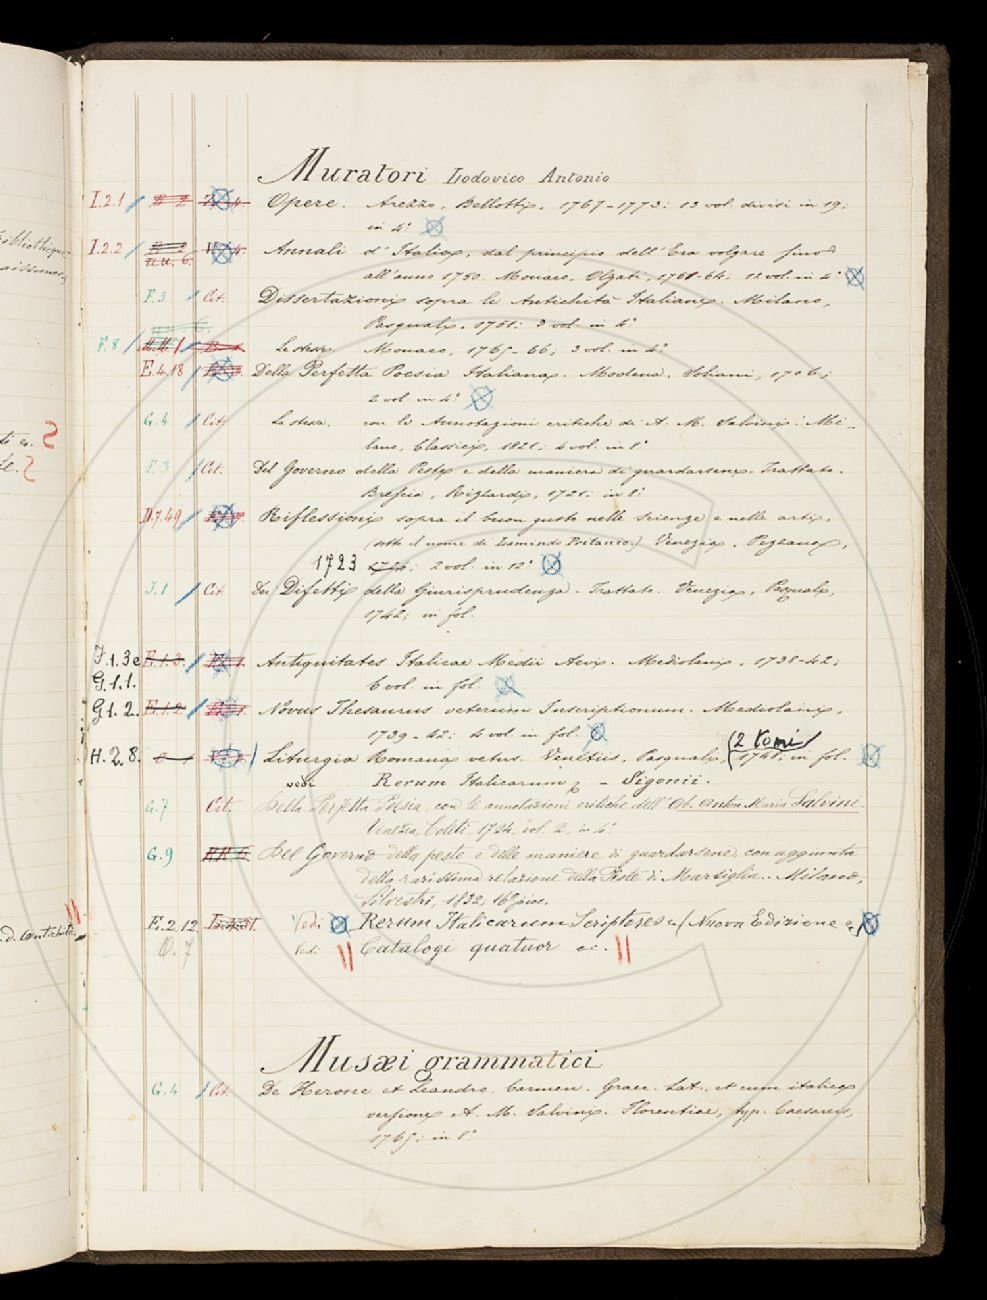 Muratori Lodovico Antonio
I.2.1 Opere. Arezzo, Bellotti, 1767-1773; 13 vol. divisi in 19;
in 4°
I.2.2 Annali d'Italia, dal principio dell'Era volgare fino
all'anno 1750. Monaco, Olzati, 1761-64; 12 vol. in 4°
F.3 Cit. Dissertazioni sopra le Antichità Italiane. Milano,
Pasquali, 1751; 3 vol. in 4°
F.8 Le stesse. Monaco, 1765-66; 3 vol. in 4°
E.4.18 Della Perfetta Poesia Italiana. Modena, Soliani, 1706;
2 vol. in 4°
G.4 Cit. La stessa. con le Annotazioni critiche di A. M. Salvini. Mi-
lano, Classici, 1821; 4 vol. in 8°
F.3 Cit. Del Governo della Peste e della maniera di guardarsene. Trattato.
Brescia, Rizzardi, 1721; in 8°
D.7.49 Riflessioni sopra il buon gusto nelle scienze e nelle arti,
(sotto il nome di Lamindo Pritanio.) Venezia, Pezzana,
1723 2 vol. in 12°
I.1 Cit. Dei Difetti della Giurisprudenza. Trattato. Venezia, Pasquali,
1742; in fol.
J.1.3 e E.1.3. Antiquitates Italicae Medii Aevi. Mediolani, 1738-42;
G.1.1. 6 vol. in fol.
G.1.2. E.1.2 Novus Thesaurus veterum Inscriptionum. Mediolani,
1739-42; 4 vol. in fol.
(2 tomi)
H.2.8. Liturgia Romana vetus. Venetiis, Pasquali, 1748, in fol.
vedi Rerum Italicarum - Sigonii.
G.7 Cit. Della Perfetta Poesia, con le annotazioni critiche dell'Ab. Anton Maria Salvini
Venezia, Coleti, 1724. vol. 2, in 4°
G.9 Del Governo della peste e delle maniere di guardarsene, con aggiunta
della rarissima relazione della Peste di Marsiglia. Milano,
Silvestri, 1832, 16° picc.
E.2.12 Vedi Rerum Italicarum Scriptores ec. (Nuova Edizione ec.)
O.7 Vedi Catalogi quatuor ec.
Musæi grammatici
G.4 Cit. De Herone et Leandro, Carmen. Graec. Lat., et cum italica
versione A. M. Salvini. Florentiae, typ. Caesareis,
1765; in 8°